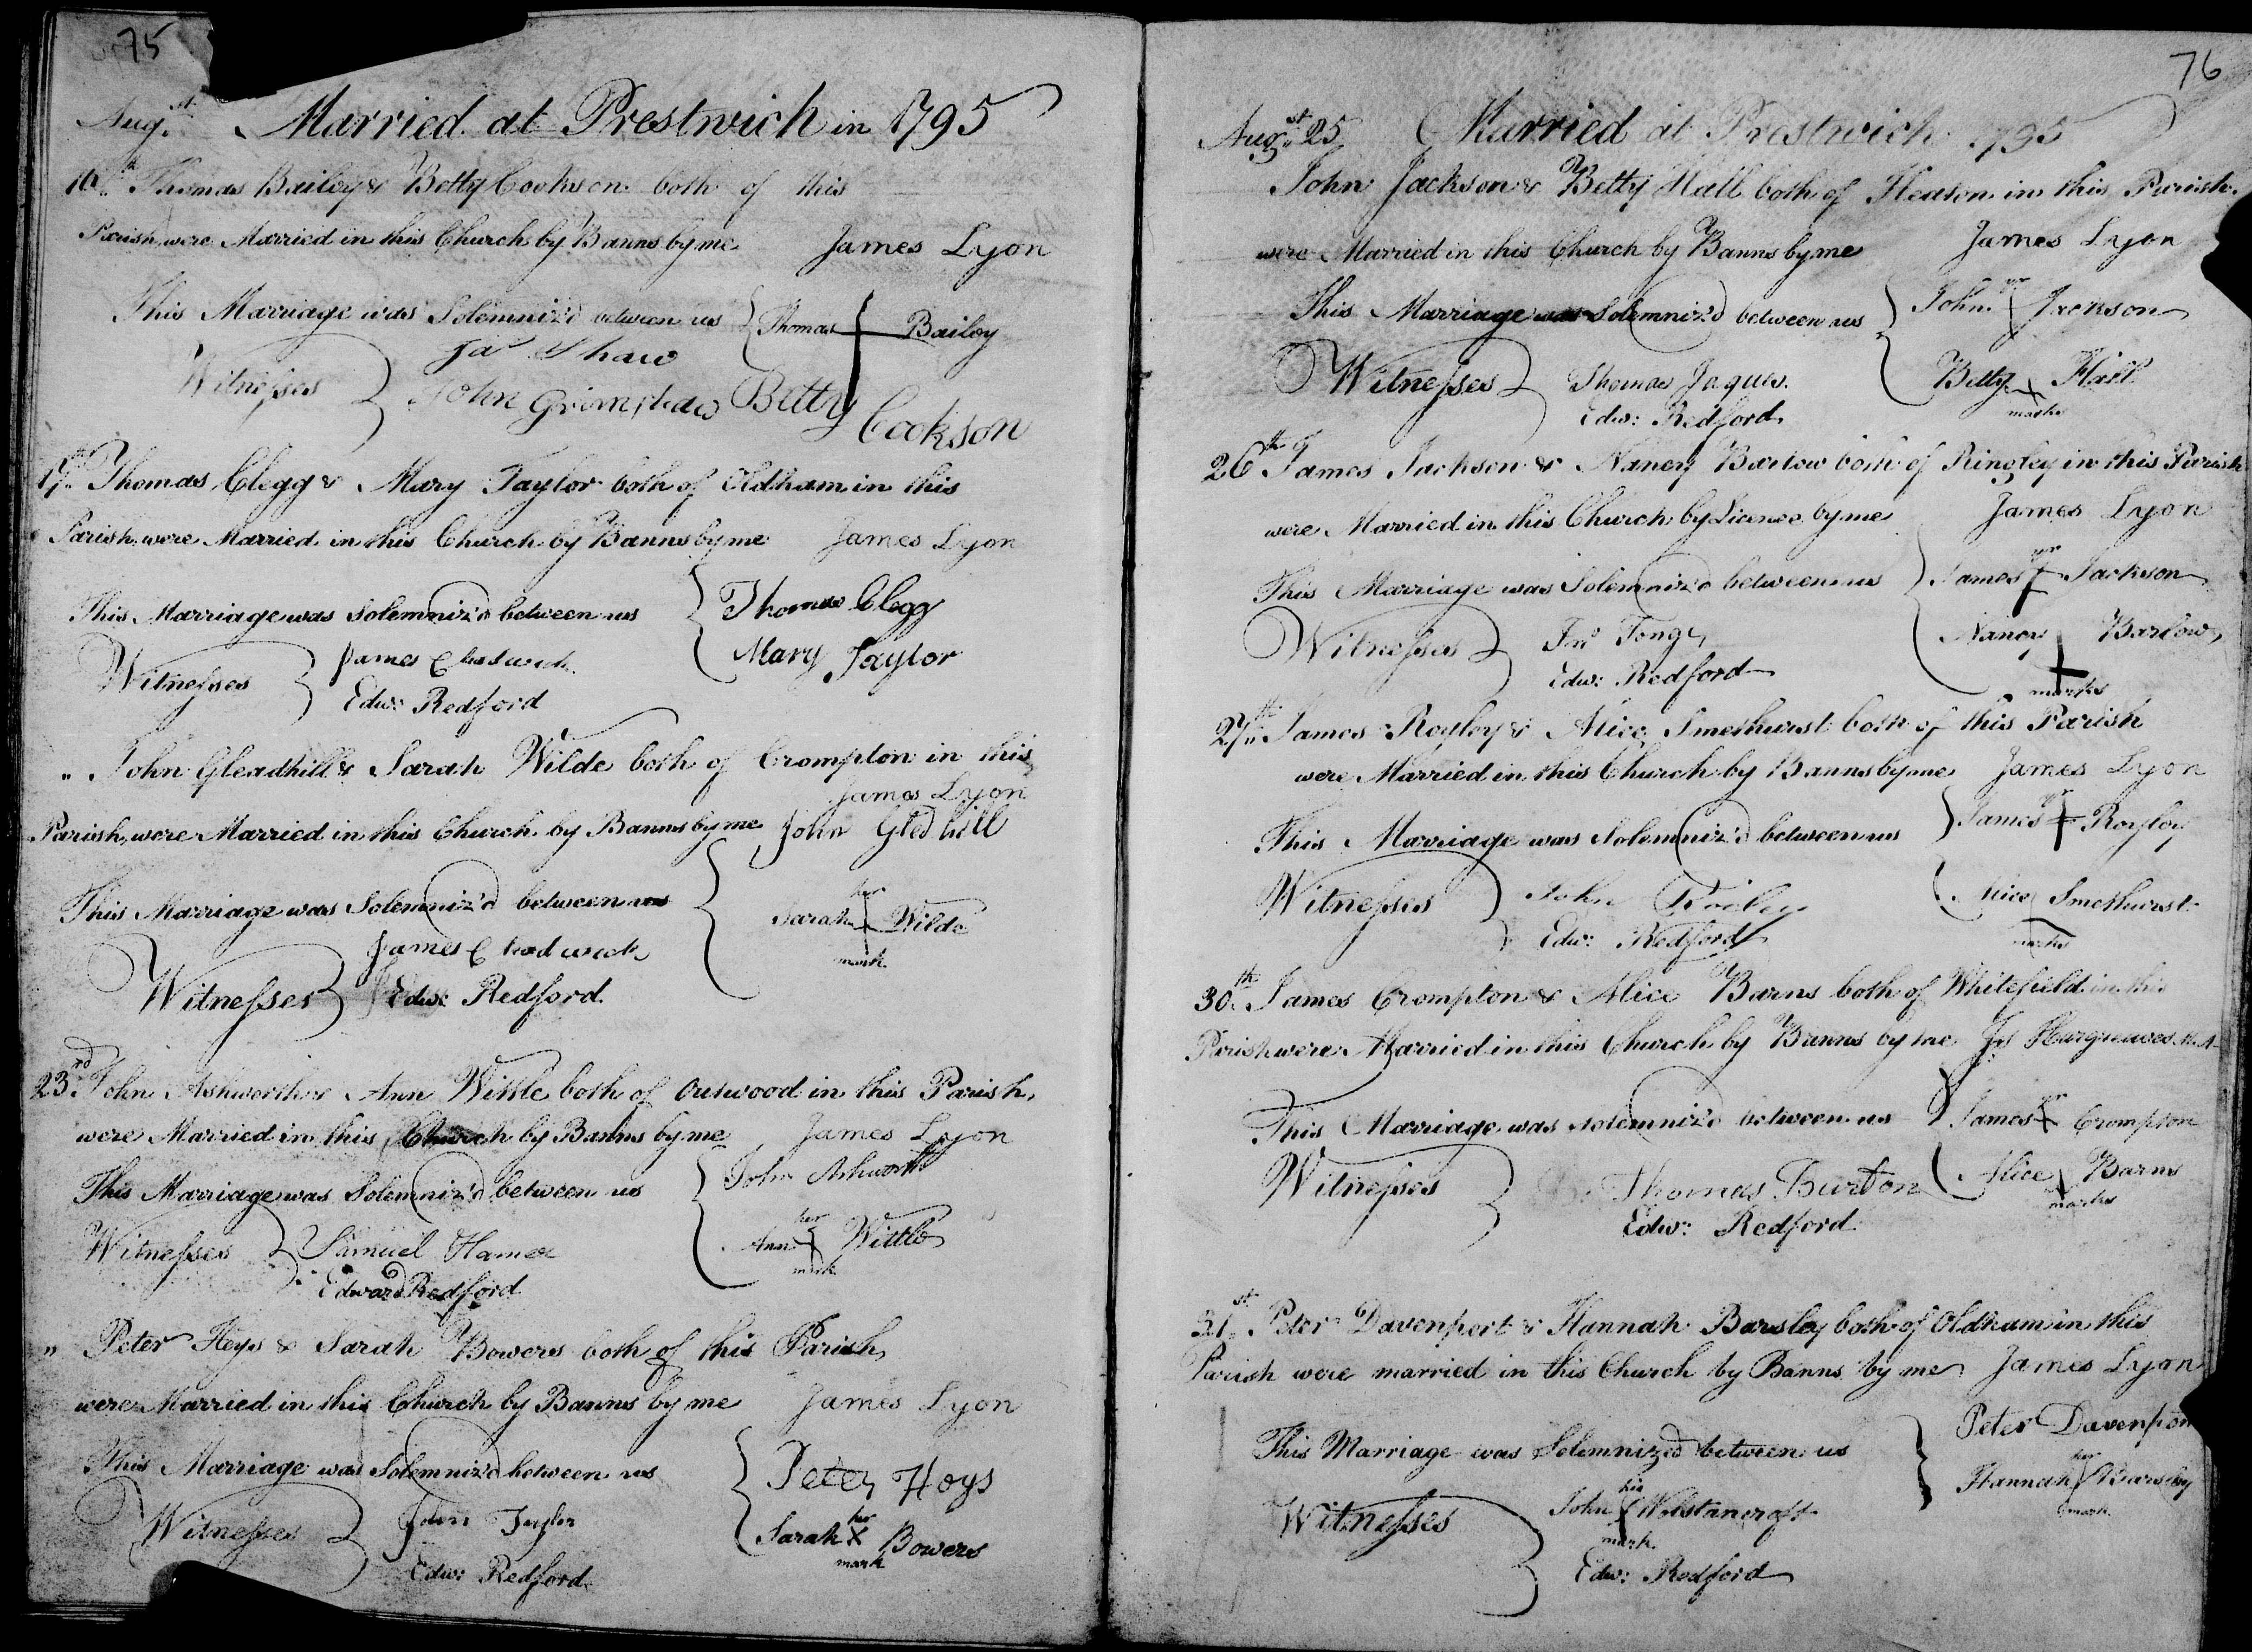 75
Augst. Married at Prestwich in 1795
16th Thomas Bailey & Betty Cookson both of this
Parish were Married in this Church by Banns by me James Lyon
This Marriage was Solemniz'd between us Thomas + Bailey
Witnesses Jas Shaw
John Grimshaw Betty Cookson
17th Thomas Clegg & Mary Taylor both of Oldham in this
Parish were Married in this Church by Banns by me James Lyon
This Marriage was Solemniz'd between us Thomas Clegg
Witnesses James Chadwick Mary Taylor
Edw: Redford
" John Gleadhill & Sarah Wilde both of Crompton in this
James Lyon
Parish, were Married in this Church by Banns by me John Gledhill
This Marriage was Solemniz'd between us Sarah her + mark Wilde
James Chadwick
Witnesses Edw: Redford
23rd John Ashworth & Ann Wittle both of Outwood in this Parish,
were Married in this Church by Banns by me James Lyon
This Marriage was Solemniz'd between us John Ashworth
Witnesses Samuel Hamer Ann her + mark Wittle
Edward Redford
" Peter Heys & Sarah Bowers both of this Parish,
were Married in this Church by Banns by me James Lyon
This Marriage was Solemniz'd between us Peter Hoys
Witnesses John Sarah her X mark Bowers
Edw: Redford
76
Augst. 25 Married at Prestwich 1795
John Jackson & Betty Hall both of Heaton in this Parish
were Married in this Church by Banns by me James Lyon
This Marriage was Solemniz'd between us John Jackson
Witnesses Thomas Jaques Betty Hall
Edw: Redford marks
26th James Jackson & Nancy Barlow both of Ringley in this Parish
were Married in this Church by Licence by me James Lyon
This Marriage was Solemniz'd between us James + Jackson
Witnesses Jno Tonge Nancy + Barlow
Edw: Redford marks
27th James Royley & Alice Smethurst both of this Parish
were Married in this Church by Banns by me James Lyon
This Marriage was Solemniz'd between us James + Royley
Witnesses John Alice Smethurst
Edw: Redford marks
30th James Crompton & Alice Barns both of Whitefield in this
Parish were Married in this Church by Banns by me Js Hargreaves M.A
This Marriage was solemniz'd between us James + Crompton
Witnesses Thomas Burton Alice Barns
Edw: Redford marks
31st Peter Davenport & Hannah Barsley both of Oldham in this
Parish were married in this Church by Banns by me James Lyon
This Marriage was Solemnized between us Peter Davenport
Witnesses John his mark Wolstancroft Hannah her mark Barsley
Edw: Redford